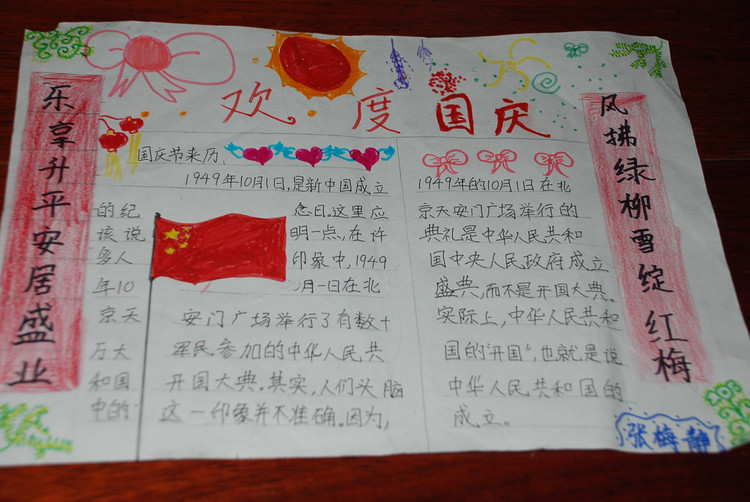 欢度国庆
乐享升平安居盛业
风拂绿柳雪绽红梅
国庆节来历、
1949年10月1日,是新中国成立
的纪 念日。这里应
该说 明一点,在许
多人 印象中,1949
年10 月一日在北
京天 安门广场举行了有数十
万大 军民参加的中华人民共
和国 开国大典。其实,人们头脑
中的 这一印象并不准确。因为,
1949年的10月1日在北
京天安门广场举行的
典礼是中华人民共和
国中央人民政府成立
盛典,而不是开国大典。
实际上,中华人民共和
国的“开国”,也就是说
中华人民共和国的
成立。
张梅静